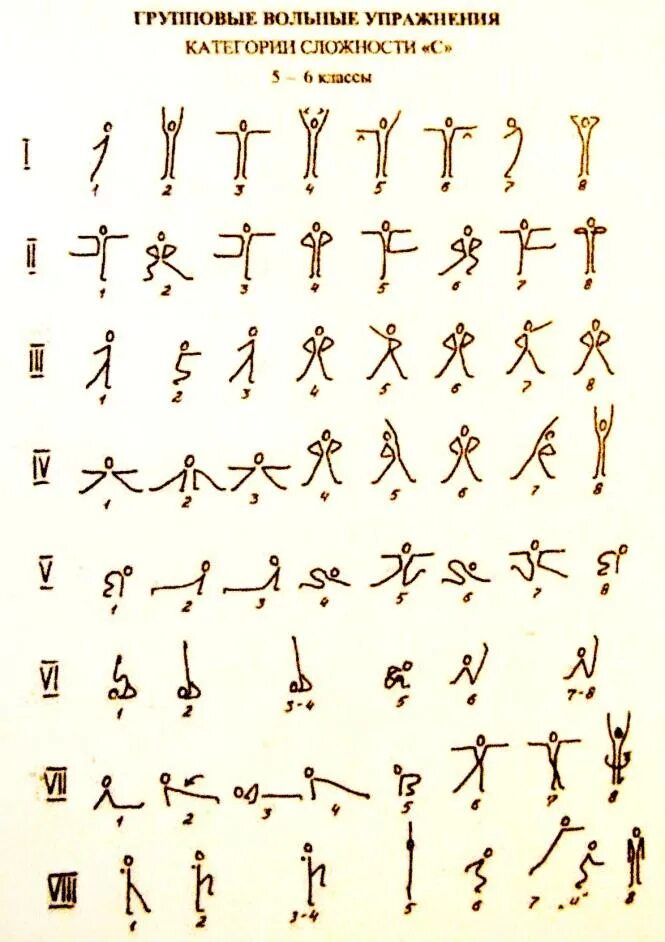 ГРУППОВЫЕ ВОЛЬНЫЕ УПРАЖНЕНИЯ
КАТЕГОРИИ СЛОЖНОСТИ «С»
5 – 6 классы
I
1 2 3 4 5 6 7 8
II
1 2 3 4 5 6 7 8
III
1 2 3 4 5 6 7 8
IV
1 2 3 4 5 6 7 8
V
1 2 3 4 5 6 7 8
VI
1 2 3-4 5 6 7-8
VII
1 2 3 4 5 6 7 8
VIII
1 2 3-4 5 6 7 „и" 8